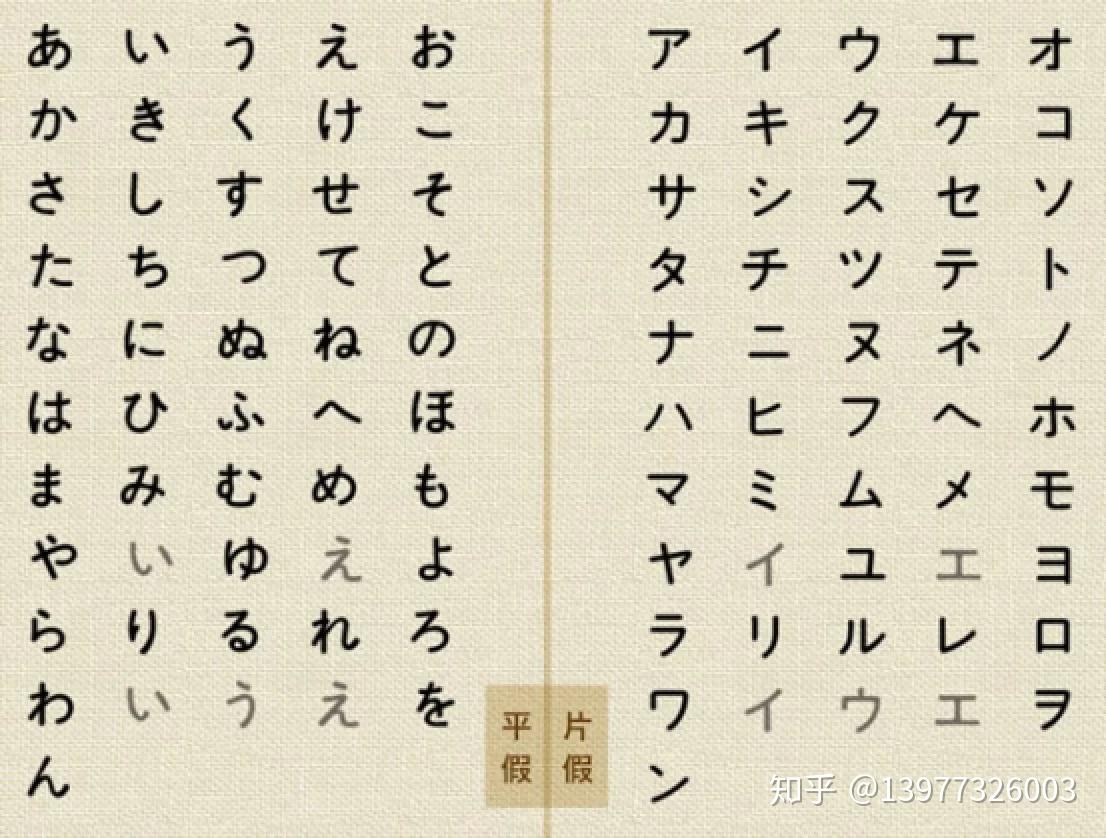 あ い う え お
か き く け こ
さ し す せ そ
た ち つ て と
な に ぬ ね の
は ひ ふ へ ほ
ま み む め も
や い ゆ え よ
ら り る れ ろ
わ い う え を
ん
平假
ア イ ウ エ オ
カ キ ク ケ コ
サ シ ス セ ソ
タ チ ツ テ ト
ナ ニ ヌ ネ ノ
ハ ヒ フ ヘ ホ
マ ミ ム メ モ
ヤ イ ユ エ ヨ
ラ リ ル レ ロ
ワ イ ウ エ ヲ
ン
片假
知乎 @13977326003